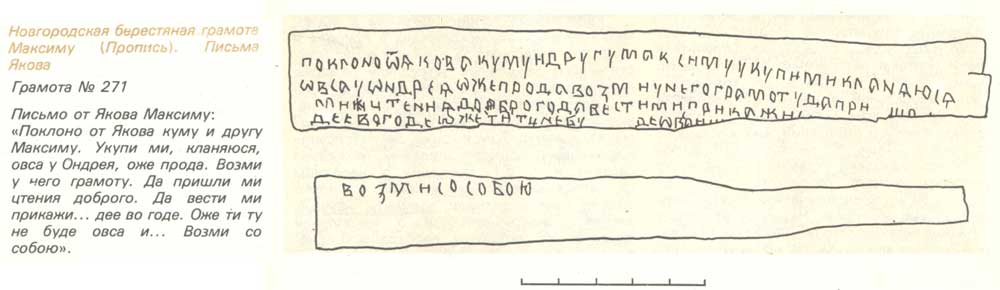 Новгородская берестяная грамота
Максиму (Пропись). Письма
Якова
Грамота № 271
Письмо от Якова Максиму:
«Поклоно от Якова куму и другу
Максиму. Укупи ми, кланяюся,
овса у Ондрея, оже прода. Возми
у него грамоту. Да пришли ми
цтения доброго. Да вести ми
прикажи... дее во годе. Оже ти ту
не буде овса и... Возми со
собою».
ПОКЛОНОѾꙖКОВАКУМУИДРУГУМАКСИМУУКУПИМИКЛАНѦЮСѦ
ѠВСАУѠНДРЕѦѠЖЕПРОДАВОЗМИУНЕГОГРАМОТУДАПРИ
МИЖЦТЕНИѦДОБРОГОДАВЕСТИМИПРИКАЖИ
ДЕЕВОГОДЕѠЖЕТИТУНЕБУ
ВОЗМИСОСОБОЮ